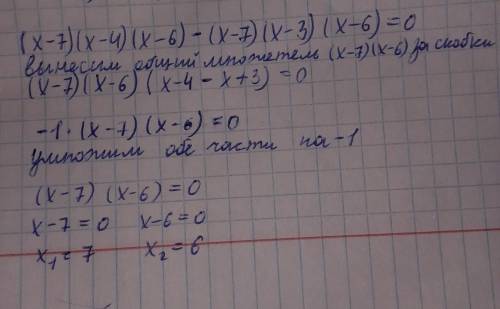 (x-7)(x-4)(x-6)-(x-7)(x-3)(x-6)=0
вынесим общий множетель (x-7)(x-6) за скобки
(x-7)(x-6)(x-4-x+3)=0
-1·(x-7)(x-6)=0
умножим обе части на -1
(x-7)(x-6)=0
x-7=0 x-6=0
x₁=7 x₂=6